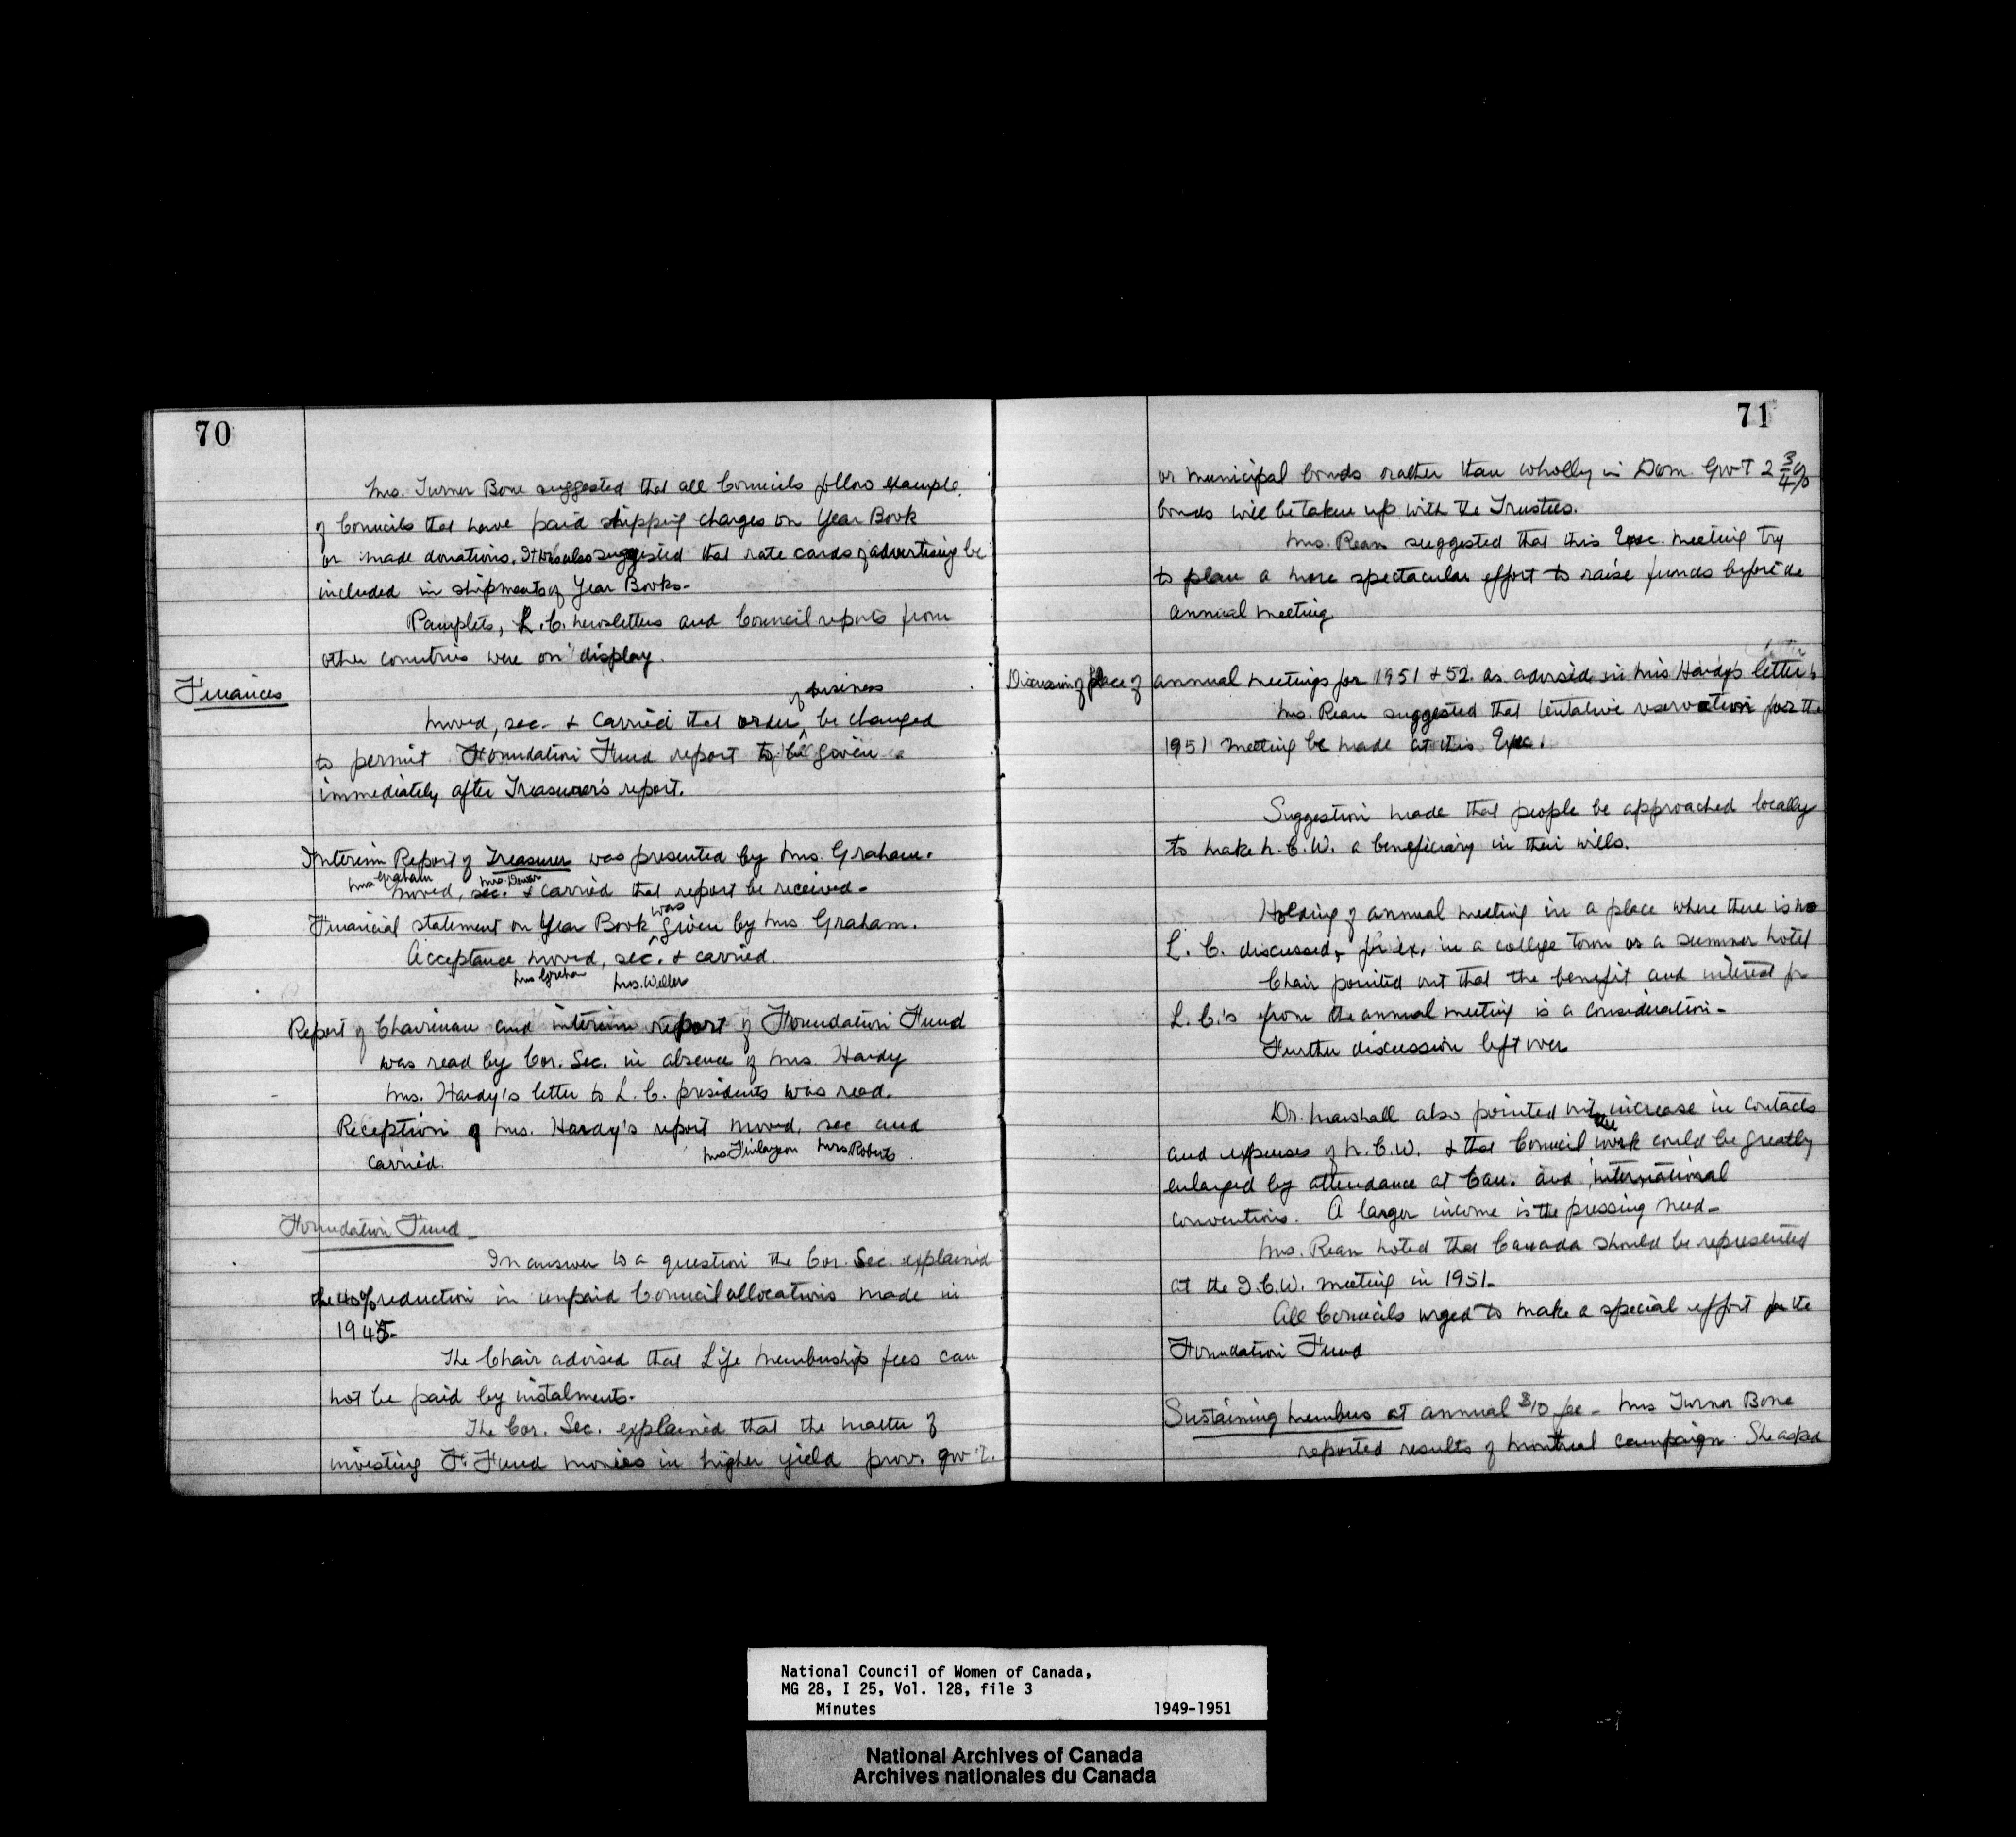 70
Mrs. Turner Bone suggested that all Councils follow example
of Councils that have paid shipping charges on Year Book
or made donations. It was also suggested that rate cards of advertising be
included in shipments of Year Books-
Pamplets, L.C. newsletters and Council reports from
other countries were on display.
Finances
of business
Moved, sec. & carried that order be changed
to permit Foundation Fund report to be given
immediately after Treasurer's report.
Interim Report of Treasurer was presented by Mrs. Graham.
Mrs Graham Mrs.
Moved, sec. & carried that report be received-
was
Financial statement on Year Book given by Mrs Graham.
Acceptance moved, sec. & carried.
Mrs Graham Mrs. Weller
Report of Chairman and interim report of Foundation Fund
was read by Cor. Sec. in absence of Mrs. Hardy
Mrs. Hardy's letter to L.C. presidents was read.
Reception of Mrs. Hardy's report moved, sec and
Mrs Finlayson Mrs. Roberts
carried.
Foundation Fund-
In answer to a question the Cor. Sec. explained
the 40% reduction in unpaid Council allocations made in
1945-
The Chair advised that Life Membership fees can
not be paid by instalments-
The Cor. Sec. explained that the matter of
investing F. Fund monies in higher yield prov. gov't.
71
or municipal bonds rather than wholly in Dom. Gov-T 2 3/4 %
bonds will be taken up with the Trustees.
Mrs. Rean suggested that this Exec. meeting try
to plan a more spectacular effort to raise funds before the
annual meeting
Discussion of place of annual meetings for 1951 & 52 as advised in Mrs Hardy's letter
Mrs. Rean suggested that tentative reservation for the
1951 meeting be made at this Exec.
Suggestion made that people be approached locally
to make N.C.W. a beneficiary in their wills.
Holding of annual meeting in a place where there is no
L. C. discussed, for ex. in a college town or a summer hotel
Chair pointed out that the benefit and interest for
L. C.'s from the annual meeting is a consideration-
Further discussion left over
Dr. Marshall also pointed out increase in contacts
the
and expenses of N.C.W. & that Council work could be greatly
enlarged by attendance at Can. and international
conventions. A larger income is the pressing need-
Mrs. Rean noted that Canada should be represented
at the I.C.W. meeting in 1951-
All Councils urged to make a special effort for the
Foundation Fund
Sustaining Members at annual $10 fee - Mrs Turner Bone
reported results of Montreal campaign. She asked
National Council of Women of Canada,
MG 28, I 25, Vol. 128, file 3
Minutes 1949-1951
National Archives of Canada
Archives nationales du Canada